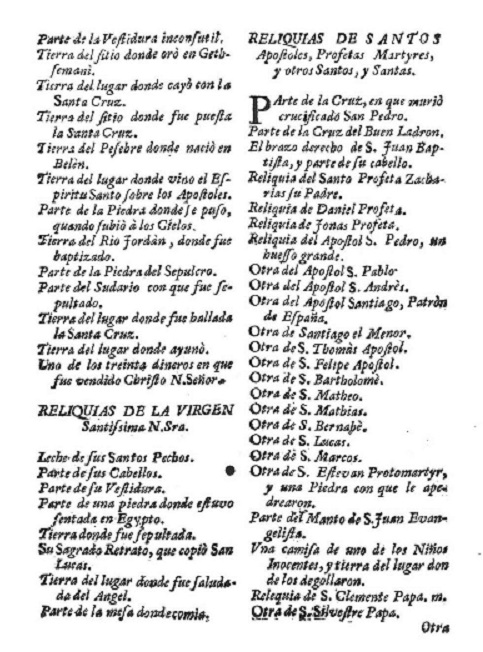 Parte de la Vestidura inconsutil.
Tierra del sitio donde orò en Geth-
semani.
Tierra del lugar donde cayò con la
Santa Cruz.
Tierra del sitio donde fue puesta
la Santa Cruz.
Tierra del Pesebre donde naciò en
Belèn.
Tierra del lugar donde vino el Es-
piritu Santo sobre los Apostoles.
Parte de la Piedra donde se puso,
quando subiò à los Cielos.
Tierra del Rio Jordàn, donde fue
baptizado.
Parte de la Piedra del Sepulcro.
Parte del Sudario con que fue se-
pultado.
Tierra del lugar donde fue hallada
la Santa Cruz.
Tierra del lugar donde ayunò.
Uno de los treinta dineros en que
fue vendido Christo N.Señor.
RELIQUIAS DE LA VIRGEN
Santissima N.Sra.
Leche de sus Santos Pechos.
Parte de sus Cabellos.
Parte de su Vestidura.
Parte de una piedra donde estuvo
sentada en Egypto.
Tierra donde fue sepultada.
Su Sagrado Retrato, que copiò San
Lucas.
Tierra del lugar donde fue saluda-
da del Angel.
Parte de la mesa donde comia.
RELIQUIAS DE SANTOS
Apostoles, Profetas Martyres,
y otros Santos, y Santas.
PArte de la Cruz, en que muriò
crucificado San Pedro.
Parte de la Cruz del Buen Ladron.
El brazo derecho de S. Juan Bap-
tista, y parte de su cabello.
Reliquia del Santo Profeta Zacha-
rias su Padre.
Reliquia de Daniel Profeta.
Reliquia de Jonas Profeta.
Reliquia del Apostol S. Pedro, un
huesso grande.
Otra del Apostol S. Pablo
Otra del Apostol S. Andrès.
Otra del Apóstol Santiago, Patròn
de España.
Otra de Santiago el Menor.
Otra de S. Thomàs Apostol.
Otra de S. Felipe Apostol.
Otra de S. Bartholomè.
Otra de S. Matheo.
Otra de S. Mathias.
Otra de S. Bernabè.
Otra de S. Lucas.
Otra de S. Marcos.
Otra de S. Estevan Protomartyr,
y una Piedra con que le ape-
drearon.
Parte del Manto de S.Juan Evan-
gelista.
Vna camisa de uno de los Niños
Inocentes, y tierra del lugar don
de los degollaron.
Relequia de S. Clemente Papa. m.
Otra de S. Silvestre Papa.
Otra